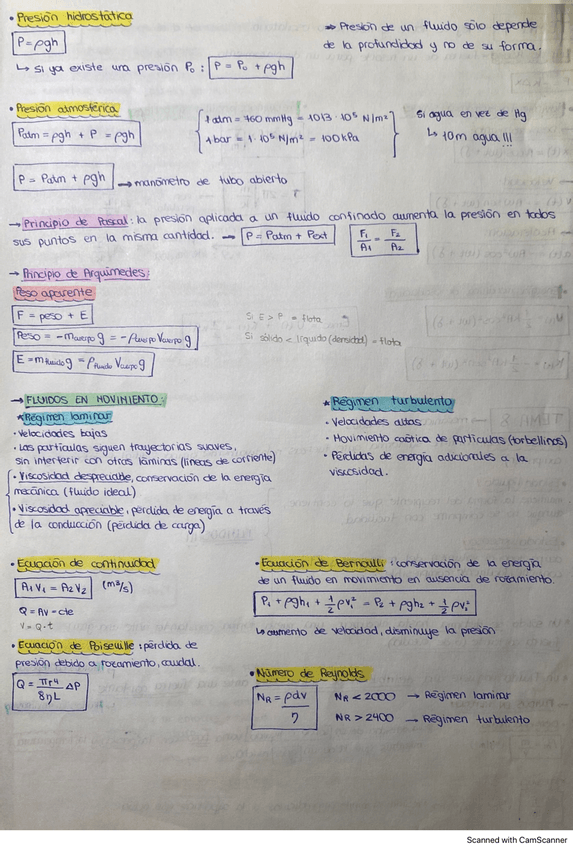 • Presión hidrostática
P = ρgh
↳ si ya existe una presión P₀ : P = P₀ + ρgh
⇒ Presión de un fluido sólo depende
de la profundidad y no de su forma.
• Presión atmosférica
Patm = ρgh + P = ρgh
1 atm = 760 mmHg = 1013 · 10⁵ N/m²
1 bar = 1 · 10⁵ N/m² = 100 kPa
Si agua en vez de Hg
↳ 10m agua !!!
P = Patm + ρgh → manómetro de tubo abierto
→ Principio de Pascal: la presión aplicada a un fluido confinado aumenta la presión en todos
sus puntos en la misma cantidad. → P = Patm + Pext F₁/A₁ = F₂/A₂
→ Principio de Arquímedes:
Peso aparente
F = peso + E
Peso = -mcuerpo g = -ρcuerpo Vcuerpo g
E = mfluido g = ρfluido Vcuerpo g
Si E > P = flota
Si sólido < líquido (densidad) = flota
→ FLUIDOS EN MOVIMIENTO:
* Régimen laminar
• Velocidades bajas
• Las partículas siguen trayectorias suaves,
sin interferir con otras láminas (líneas de corriente)
• Viscosidad despreciable, conservación de la energía
mecánica (fluido ideal)
• Viscosidad apreciable, pérdida de energía a través
de la conducción (pérdida de carga)
* Régimen turbulento
• Velocidades altas
• Movimiento caótico de partículas (torbellinos)
• Pérdidas de energía adicionales a la
viscosidad.
• Ecuación de continuidad
A₁V₁ = A₂V₂ (m³/s)
Q = Av = cte
V = Q · t
• Ecuación de Poiseuille : pérdida de
presión debido a rozamiento, caudal.
Q = πr⁴/8ηL ΔP
• Ecuación de Bernoulli : conservación de la energía
de un fluido en movimiento en ausencia de rozamiento.
P₁ + ρgh₁ + ½ρv₁² = P₂ + ρgh₂ + ½ρv₂²
↳ aumento de velocidad, disminuye la presión
• Número de Reynolds
NR = ρdv/η
NR < 2000 → Régimen laminar
NR > 2400 → Régimen turbulento
Scanned with CamScanner